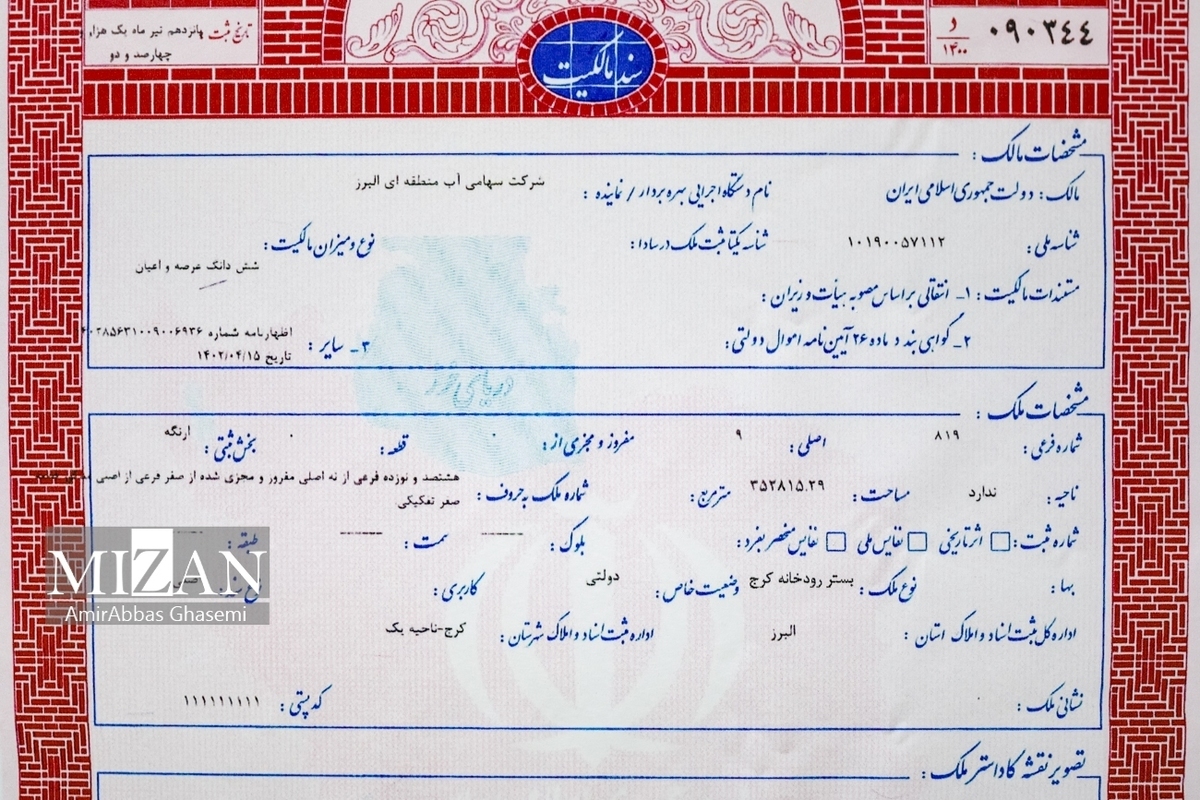 تاریخ ثبت پانزدهم تیر ماه یک هزار
چهارصد و دو
سند مالکیت
۰۹۰۳۴۴ د ۱۴۰۰
مشخصات مالک :
مالک : دولت جمهوری اسلامی ایران نام دستگاه اجرایی بهره بردار / نماینده : شرکت سهامی آب منطقه ای البرز
شناسه ملی : ۱۰۱۹۰۰۵۷۱۱۲ شناسه یکتا ثبت ملک در سادا : نوع و میزان مالکیت :
شش دانگ عرصه و اعیان
مستندات مالکیت : ۱- انتقالی بر اساس مصوبه هیأت وزیران :
۲- گواهی بند د ماده ۲۶ آیین نامه اموال دولتی : ۳- سایر : اظهارنامه شماره ۴۰۲۸۵۶۳۱۰۰۹۰۰۶۹۳۶
تاریخ ۱۴۰۲/۰۴/۱۵
دریای خزر
مشخصات ملک :
شماره فرعی : ۸۱۹ اصلی : ۹ مفروز و مجزی از : ۰ قطعه : ۰ بخش ثبتی : ارنگه
ناحیه : ندارد مساحت : ۳۵۲۸۱۵.۲۹ مترمربع : شماره ملک به حروف : هشتصد و نوزده فرعی از نه اصلی مفروز و مجزی شده از صفر فرعی از اصلی
صفر تفکیکی
شماره ثبت : اثر تاریخی نفایس ملی نفایس منحصر بفرد : بلوک : ----- سمت : ----- طبقه :
بها : نوع ملک : بستر رودخانه کرج وضعیت خاص : دولتی کاربری :
اداره کل ثبت اسناد و املاک استان : البرز اداره ثبت اسناد و املاک شهرستان : کرج-ناحیه یک
نشانی ملک : کد پستی : ۱۱۱۱۱۱۱۱۱۱
تصویر نقشه کاداستر ملک :
MIZAN
AmirAbbas Ghasemi